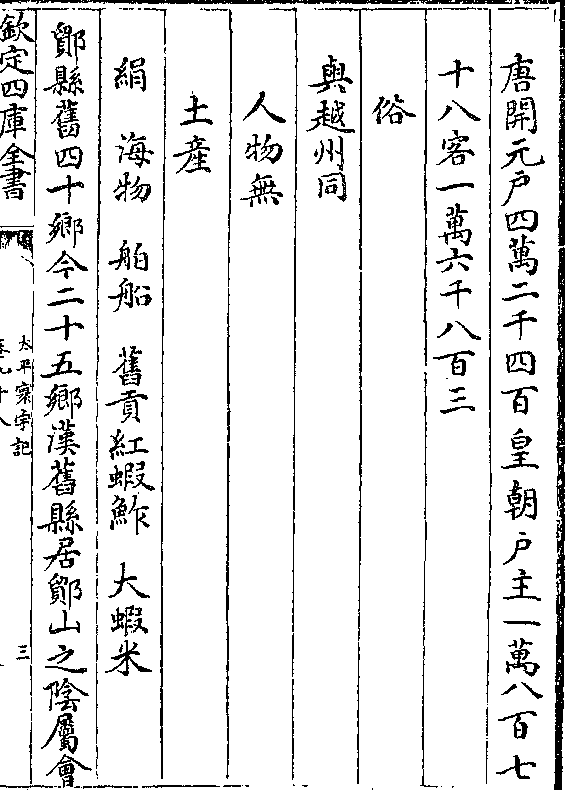 唐開元户四萬二千四百皇朝户主一萬八百七
十八客一萬六千八百三
俗
與越州同
人物無
土產
絹 海物 舶船 舊貢紅蝦鮓 大蝦米
鄮縣舊四十鄉今二十五鄉漢舊縣居鄮山之陰屬會
欽定四庫全書
太平寰宇記
卷九十八
三